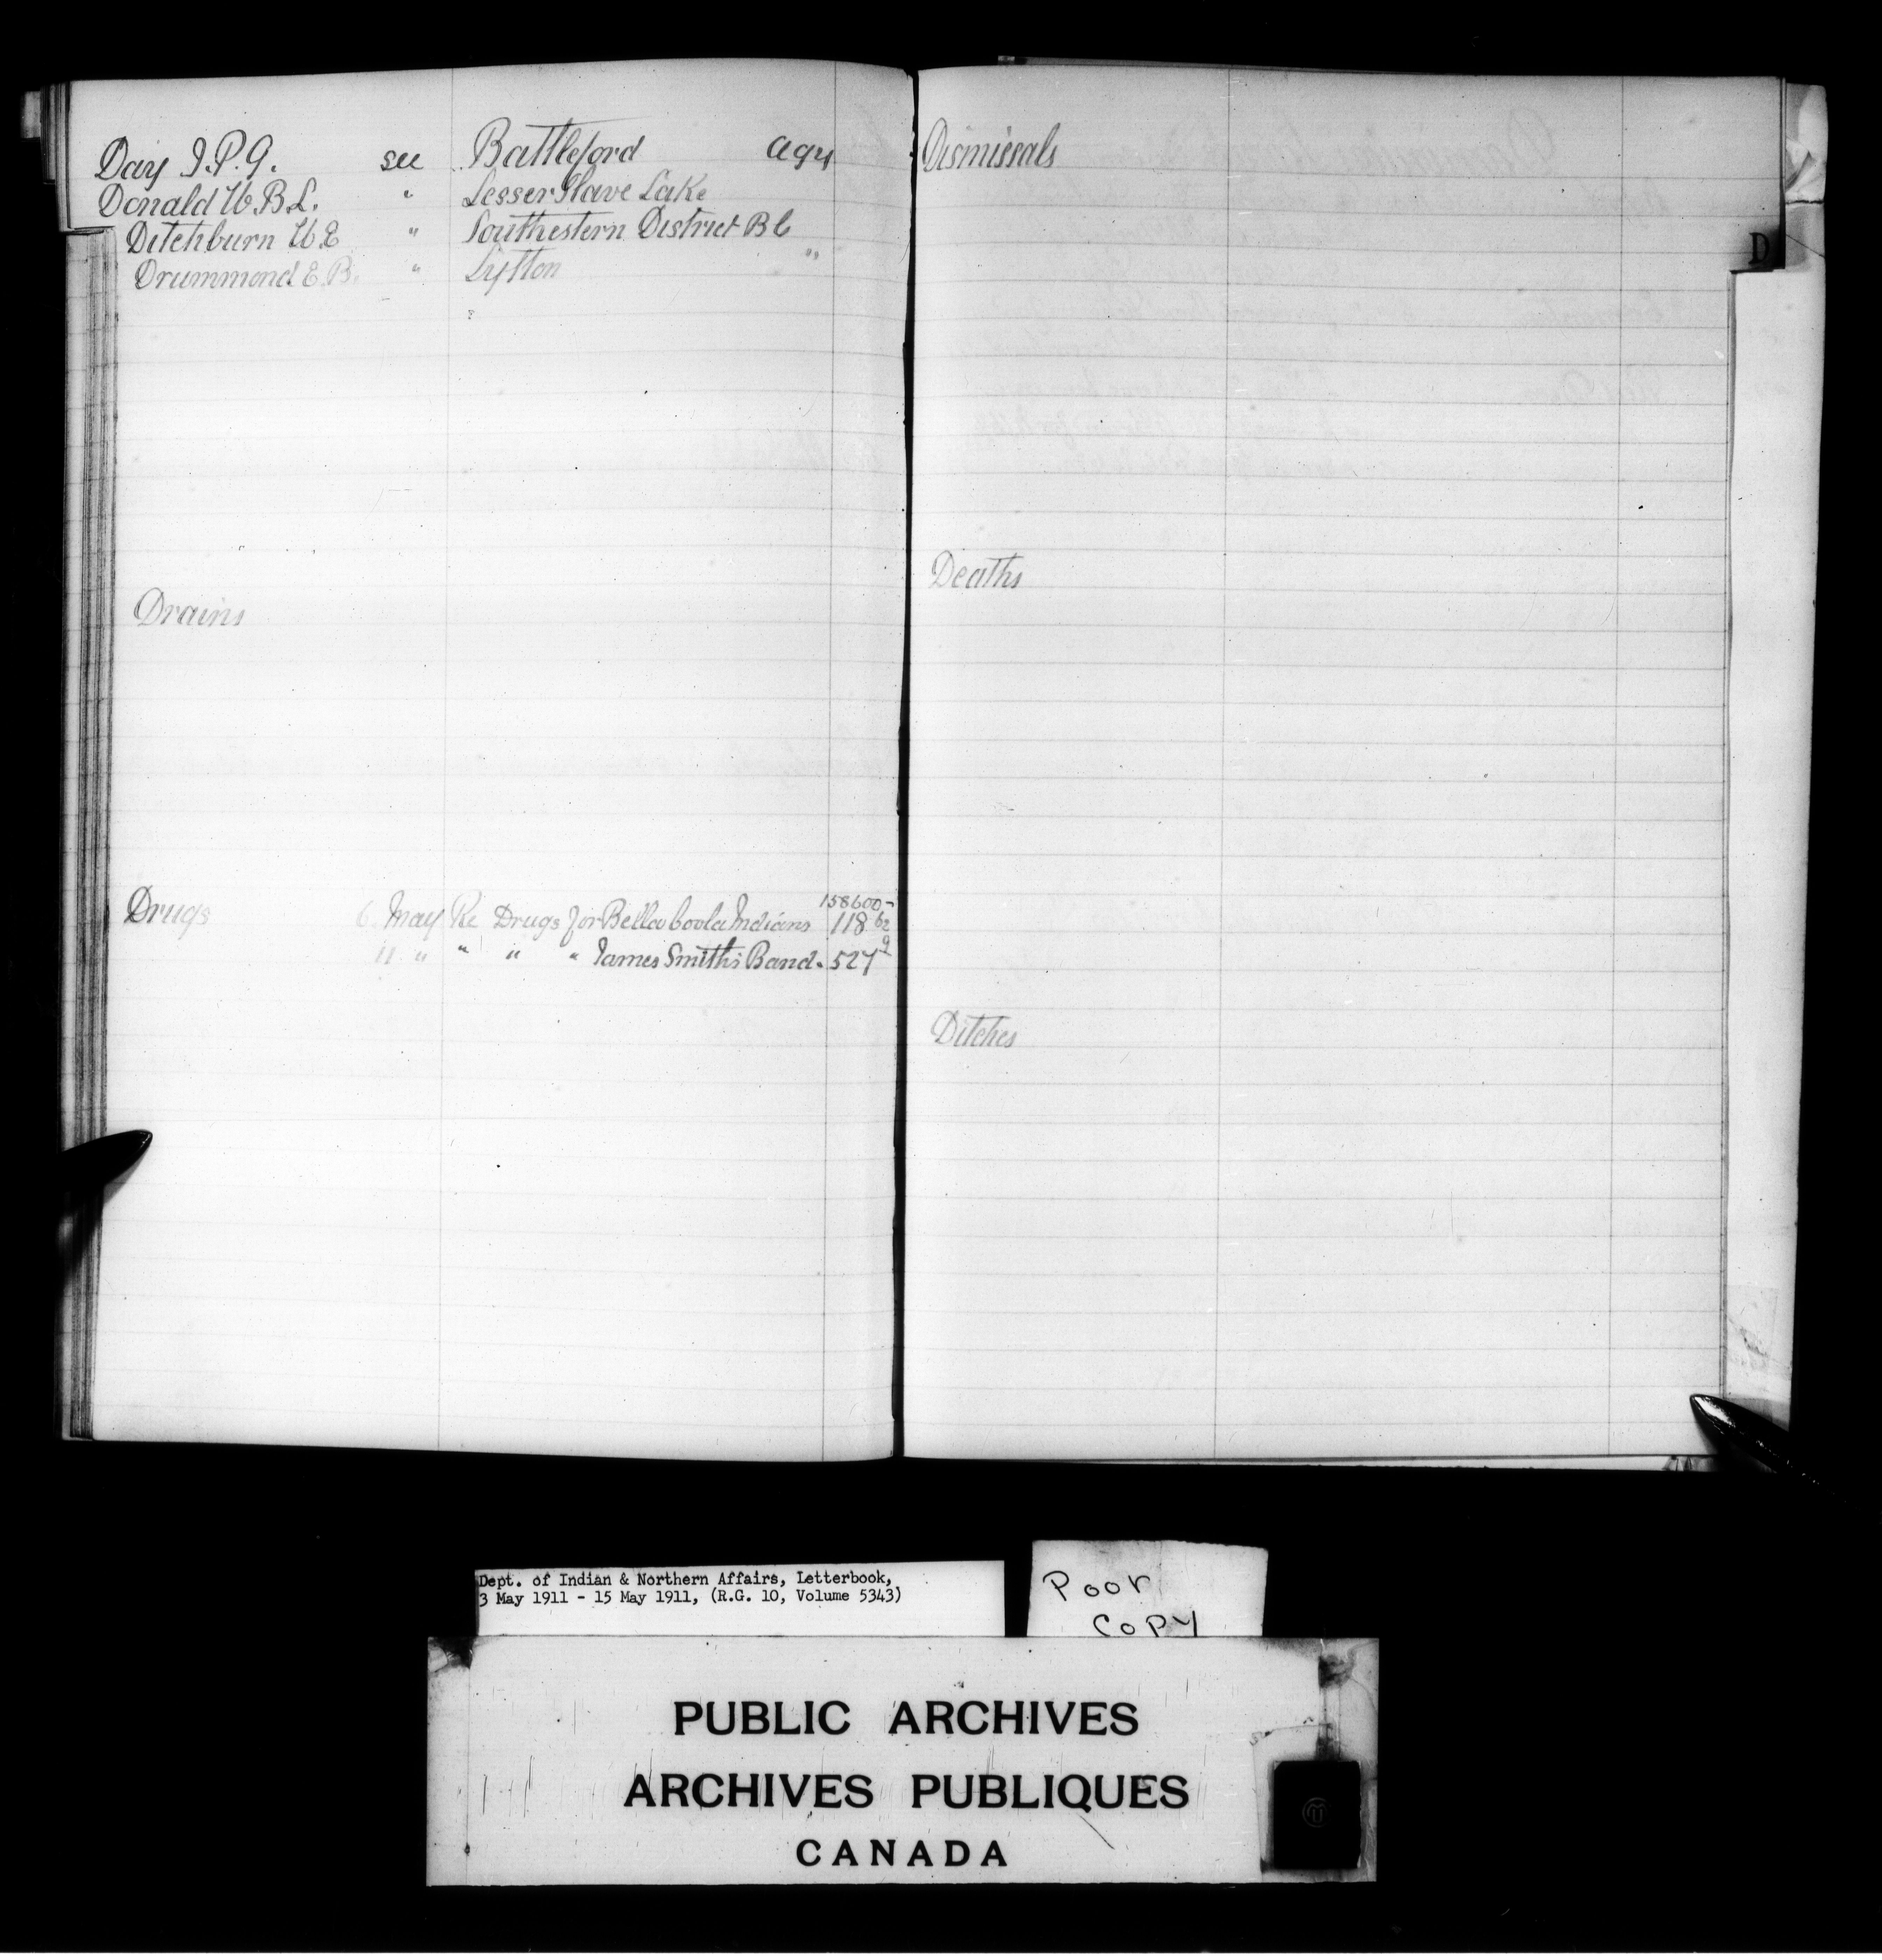 Day J.P.G. see Battleford agy
Donald W.B.L. " Lesser Slave Lake
Ditchburn W E " Southestern District B C
Drummond E.B. " Lytton " "
Drains
Drugs 6. May Re Drugs for Bella Coola Indians 158600- 118 62
11 " " " " James Smith's Band. 527 9
Dismissals
D
Deaths
Ditches
Dept. of Indian & Northern Affairs, Letterbook,
3 May 1911 - 15 May 1911, (R.G. 10, Volume 5343)
Poor
Copy
PUBLIC ARCHIVES
ARCHIVES PUBLIQUES
CANADA